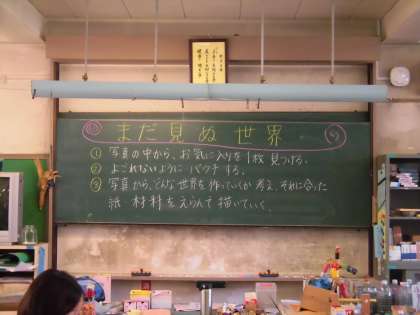 まだ見ぬ世界
① 写真の中から、お気に入りを1枚見つける。
② よごれないようにパウチする。
③ 写真から、どんな世界を作っていくか考え、それに合った
紙・材料をえらんで描いていく。